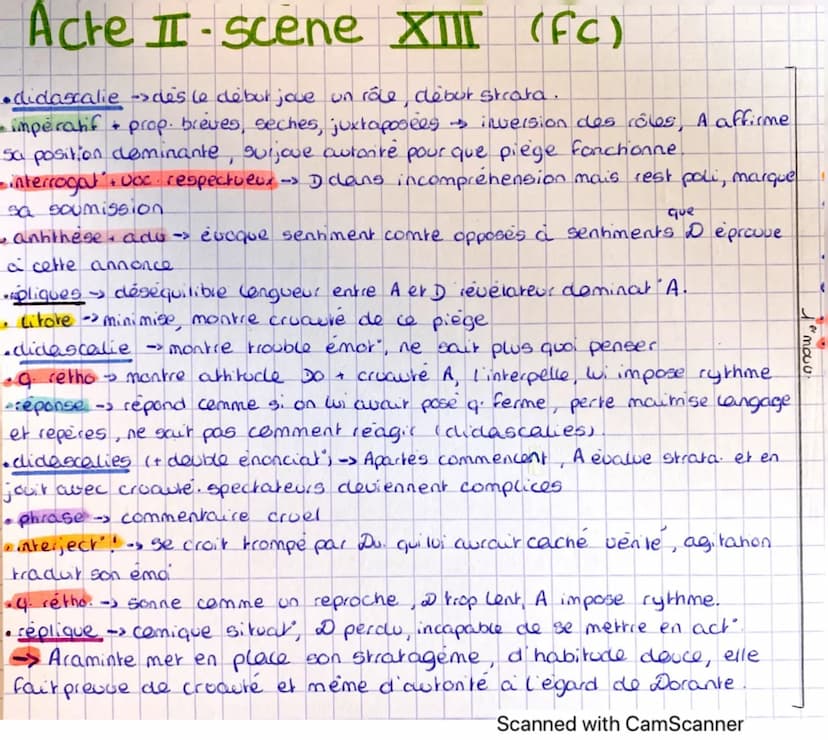 Acte II - scène XIII (FC)
• didascalie -> dès le début joue un rôle, début strata.
• impératif + prop. brèves, sèches, juxtaposées -> inversion des rôles, A affirme
sa position dominante, surjoue autorité pour que piège fonctionne.
• interrogat° + voc. respectueux -> D dans incompréhension mais rest poli, marque
sa soumission
que
• antithèse + adv -> évoque sentiment comte opposés à sentiments D éprouve
à cette annonce
• répliques -> déséquilible longueur entre A et D révélateur dominat° A.
• litote -> minimise, montre cruauté de ce piège
• didascalie -> montre trouble émot°, ne sait plus quoi penser
• q. rétho -> montre attitude Do + cruauté A, l'interpelle, lui impose rythme
• réponse -> répond comme si on lui avait posé q. ferme, perte maîtrise langage
et repères, ne sait pas comment réagir (didascalies).
• didascalies (+ double énonciat°) -> Apartés commencent, A évalue strata. et en
jouit avec cruauté. spectateurs deviennent complices
• phrase -> commentaire cruel
• interject° ! -> se croit trompé par Du. qui lui aurait caché vérité, agitation
traduit son émoi
• q. rétho. -> sonne comme un reproche, D trop lent, A impose rythme.
• réplique -> comique situat°, D perdu, incapable de se mettre en act°.
-> Araminte met en place son stratagème, d'habitude douce, elle
fait preuve de cruauté et même d'autorité à l'égard de Dorante.
1er mouv.
Scanned with CamScanner